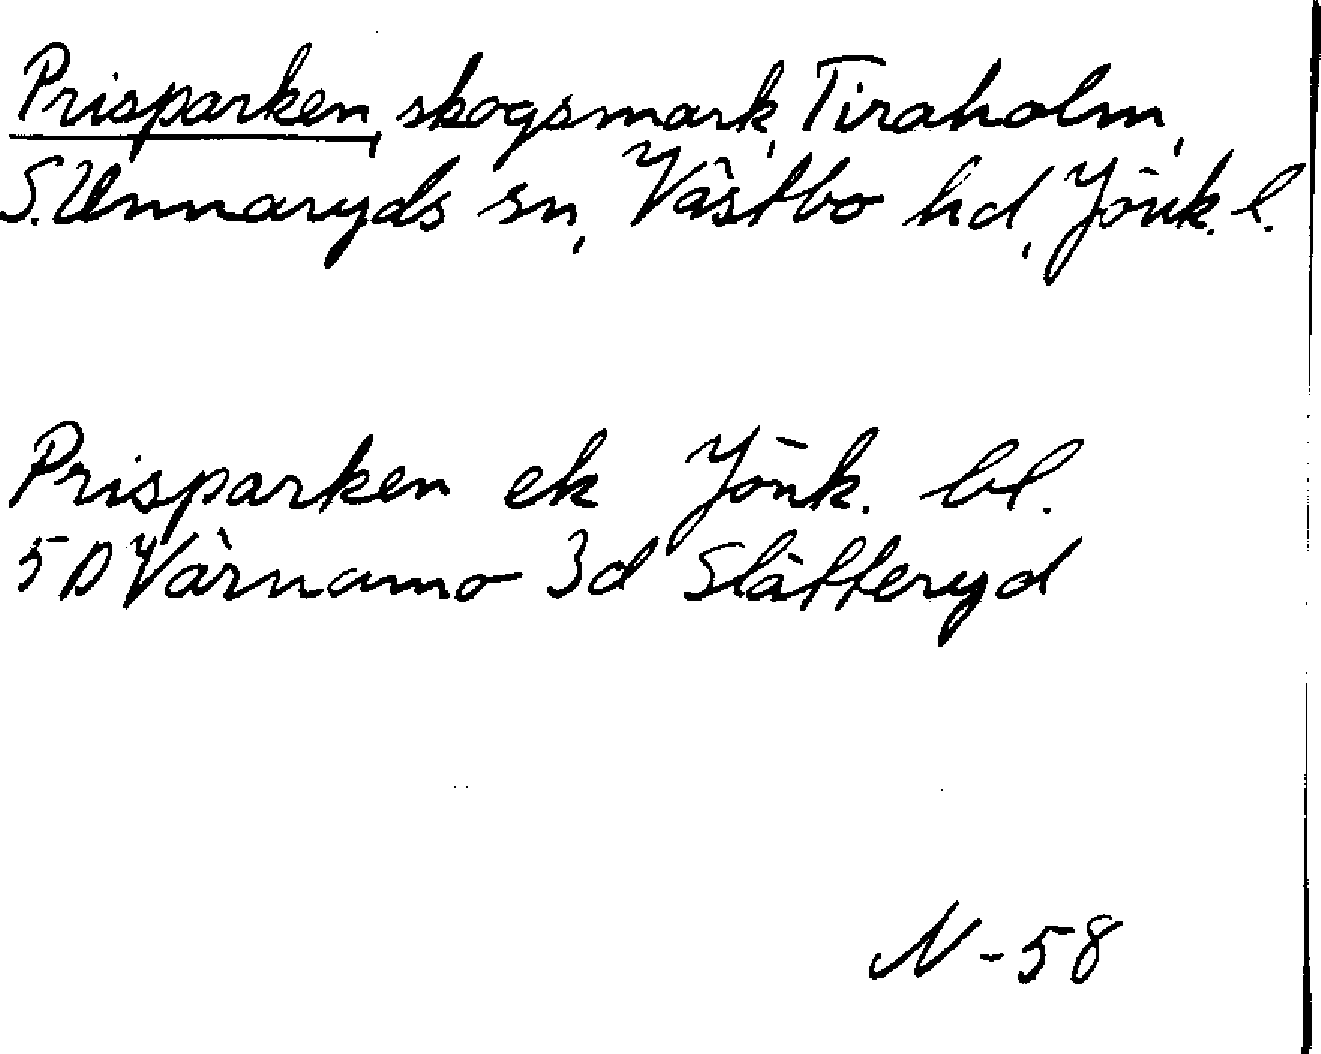 Prisparken, skogsmark, Tiraholm,
S. Unnaryds sn, Västbo hd, Jönk. l.
Prisparken ek Jönk. bl.
5D Värnamo 3d Slätteryd
N-58